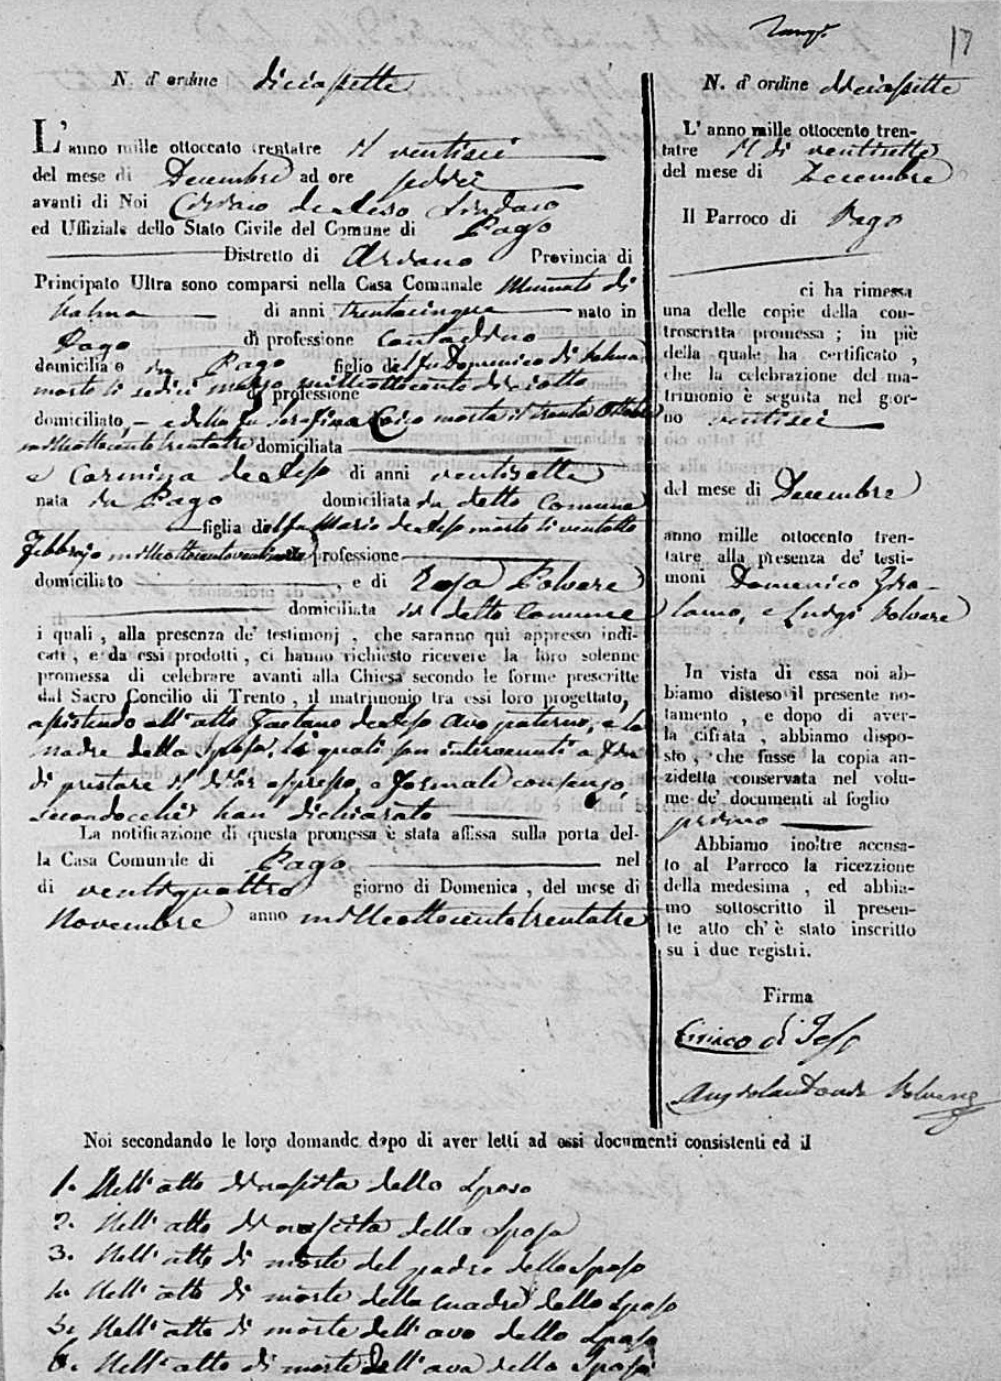 17
N. d' ordine diciassette
L' anno mille ottocento trentatre il ventisei
del mese di Decembre ad ore sedici
avanti di Noi Ciriaco de Jeso Sindaco
ed Uffiziale dello Stato Civile del Comune di Pago
Distretto di Ariano Provincia di
Principato Ultra sono comparsi nella Casa Comunale Nunziato di
Palma di anni trentacinque nato in
Pago di professione Contadino
domiciliato in Pago figlio del fu Domenico di Palma
morto li sedici marzo milleottocento dieciotto di professione
domiciliato, e della fu Serafina morta il trenta Ottobre
milleottocentotrentatre domiciliata
e Carmina de Jeso di anni ventisette
nata in Pago domiciliata in detto Comune
figlia del fu Mario de Jeso morto li ventotto
Febbrajo professione
domiciliato , e di Rosa Polvere
domiciliata in detto Comune
i quali , alla presenza de' testimonj , che saranno quì appresso indi-
cati , e da essi prodotti , ci hanno richiesto ricevere la loro solenne
promessa di celebrare avanti alla Chiesa secondo le forme prescritte
dal Sacro Concilio di Trento , il matrimonio tra essi loro progettato,
assistendo all' atto Gaetano de Jeso Avo paterno, e la
madre della Sposa, li quali son intervenuti a fin
di prestare il di loro espresso, e formale consenso,
secondocchè han dichiarato
La notificazione di questa promessa è stata affissa sulla porta del-
la Casa Comunale di Pago nel
di ventiquattro giorno di Domenica , del mese di
Novembre anno milleottocentotrentatre
N. d' ordine diciassette
L' anno mille ottocento tren-
tatre il di ventisette
del mese di Decembre
Il Parroco di Pago
ci ha rimessa
una delle copie della con-
troscritta promessa ; in piè
della quale ha certificato ,
che la celebrazione del ma-
trimonio è seguita nel gior-
no ventisei
del mese di Decembre
anno mille ottocento tren-
tatre alla presenza de' testi-
moni Domenico Giro-
lamo, e Luigi Polvere
In vista di essa noi ab-
biamo disteso il presente no-
tamento , e dopo di aver-
la cifrata , abbiamo dispo-
sto , che fusse la copia an-
zidetta conservata nel volu-
me de' documenti al foglio
primo
Abbiamo inoltre accusa-
to al Parroco la ricezzione
della medesima , ed abbia-
mo sottoscritto il presen-
te atto ch' è stato inscritto
su i due registri.
Firma
Ciriaco di Jeso
Polvere
Noi secondando le loro domande dopo di aver letti ad essi documenti consistenti ed il
1. Nell' atto di nascita dello Sposo
2. Nell' atto di nascita della Sposa
3. Nell' atto di morte del padre dello Sposo
4. Nell' atto di morte della madre dello Sposo
5. Nell' atto di morte dell' avo dello Sposo
6. Nell' atto di morte dell' ava della Sposa